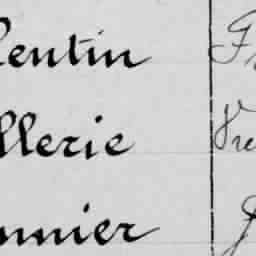 lentin F
llerie Vre
nnier